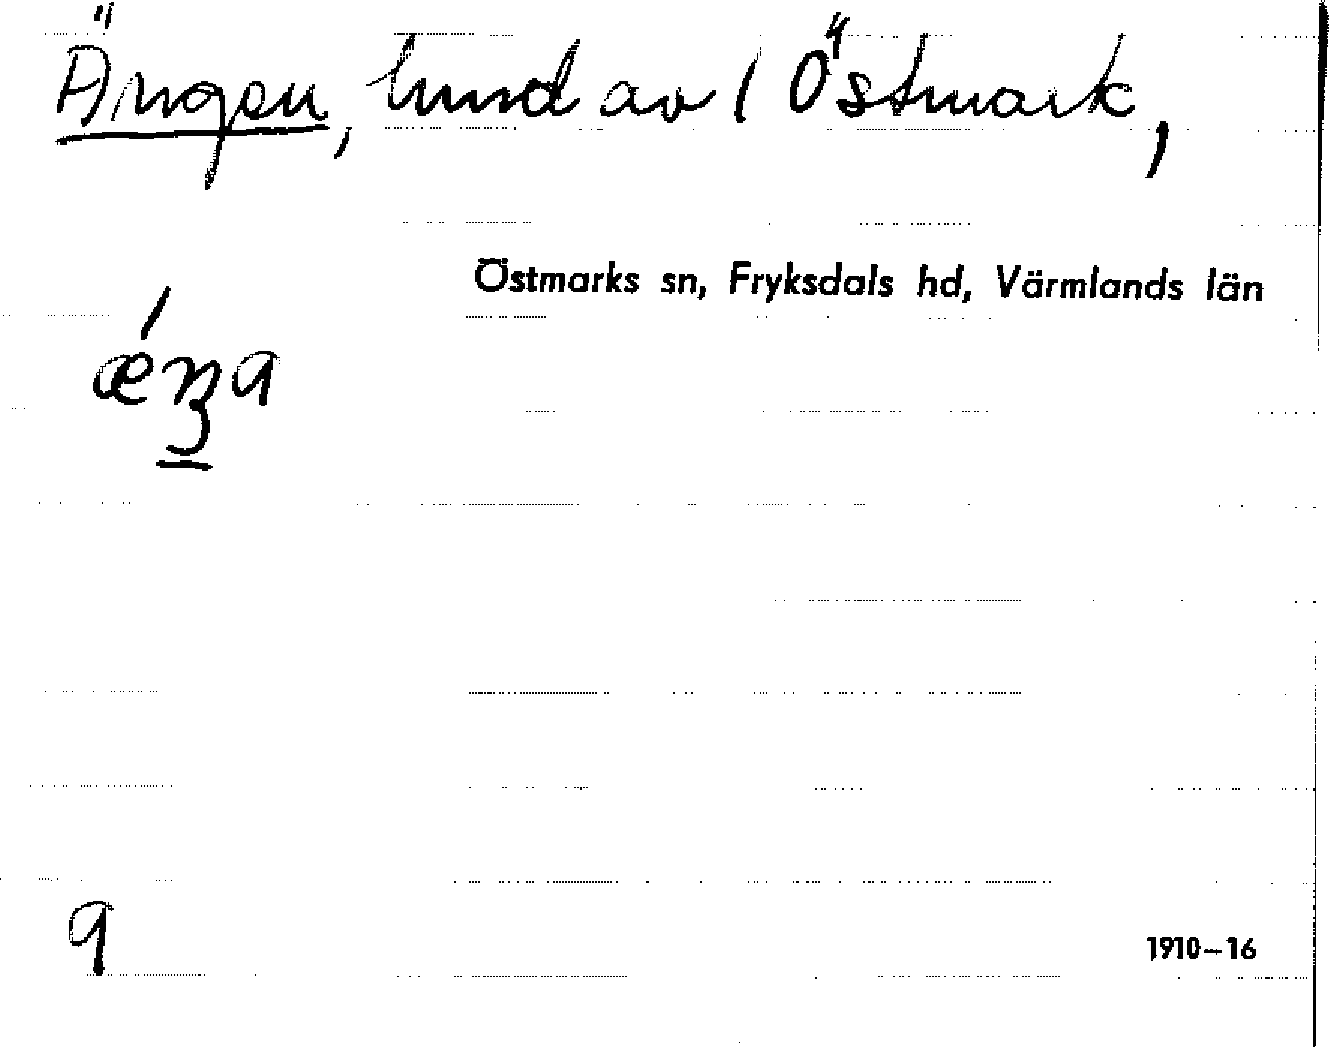 Ängen, hmd av 1 Östmark,
Östmarks sn, Fryksdals hd, Värmlands län
9
1910–16